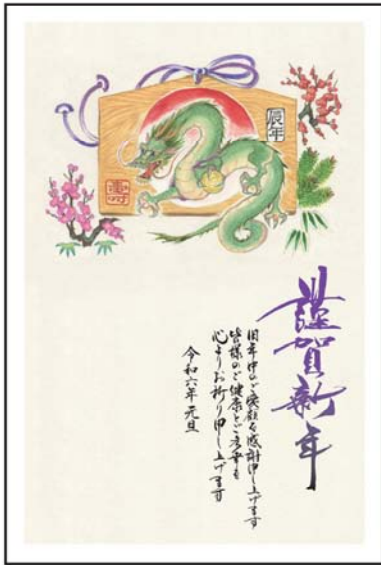 辰年
謹賀新年
旧年中のご愛顧を感謝申し上げます
皆様のご健康とご多幸を
心よりお祈り申し上げます
令和六年 元旦